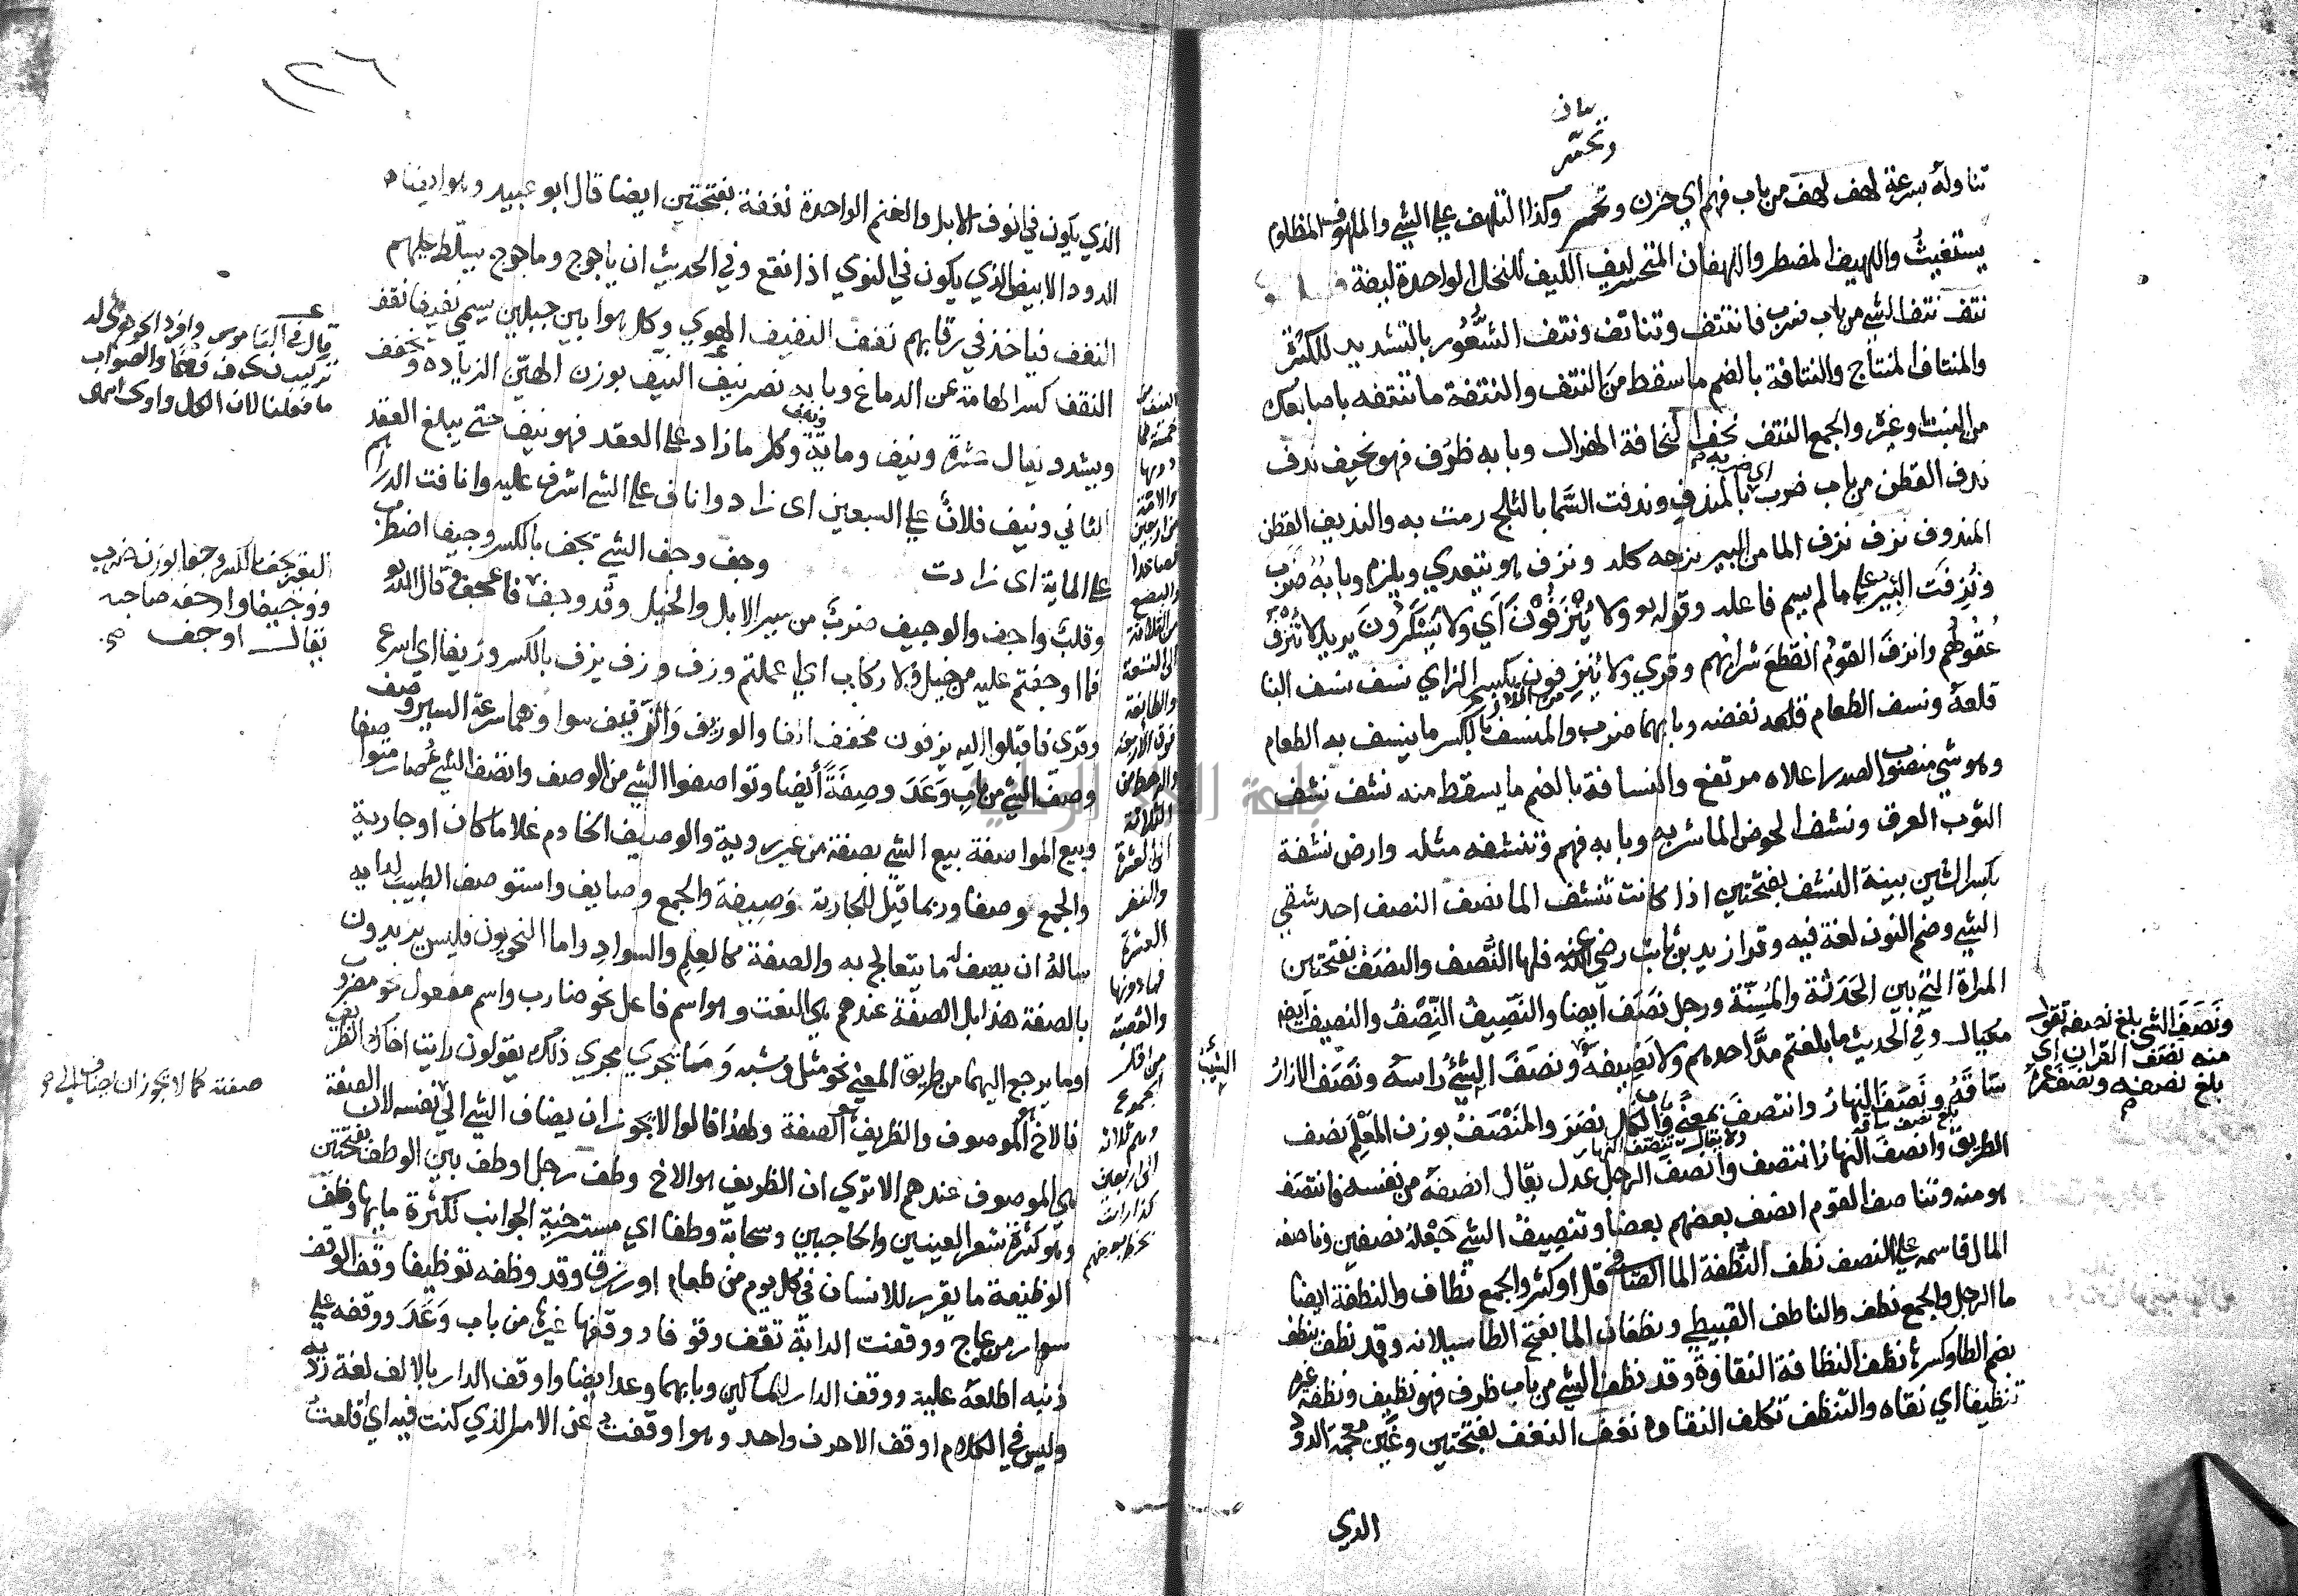 تناوله بسرعة لهف لهف من باب فهم اي حزن وتحسر وكذا التلهف علي الشي والملهوف المظلوم
يستغيث واللهيف المضطر واللهفان المتحسر ليف الليف للنخل الواحدة ليفة
نتف نتف الشي من باب ضرب فانتتف وتناتف ونتف الشعور بالتشديد للكثرة
والمنتاف المنتاخ والنتافة بالضم ما سقط من النتف والنتفة ما نتفته باصابعك
من النبت وغيره والجمع النتف نحف النحافة الهزال وبابه ظرف فهو نحيف ندف
ندف القطن من باب ضرب اي ضربه بالمندف وندفت السما بالثلج رمت به والنديف القطن
المندوف نزف نزف الما من البير نزحه كله ونزف هو يتعدي ويلزم وبابه ضرب
ونزفت البير علي ما لم يسم فاعله وقوله ولا ينزفون اي ولا يسكرون يريد لا تنزف
عقولهم وانزف القوم انقطع شرابهم وقري ولا ينزفون بكسر الزاي نسف نسف البنا
قلعه ونسف الطعام نفضه وبابهما ضرب والمنسف بالكسر ما ينسف به الطعام
وهو شي منصوب الصدر اعلاه مرتفع والنسافة بالضم ما يسقط منه نشف نشف
الثوب العرق ونشف الحوض الما شربه وبابه فهم وتنشفه مثله وارض نشفة
بكسر الشين بينة النشف بفتحتين اذا كانت تنشف الما نصف النصف احد شقي
الشي وضم النون لغة فيه وقرا زيد بن ثابت رضي الله عنه فلها النصف والنصف بفتحتين
المراة التي بين الحدثة والمسنة ورجل نصف ايضا والنصيف النصف والنصيف ايضا
مكيال وفي الحديث ما بلغتم مد احدهم ولا نصيفه ونصف الشيب راسه ونصف الازار
ساقه ونصف النهار وانتصف بمعني والكل نصر والمنصف بوزن المعلم نصف
الطريق وانصف النهار انتصف وانصف الرجل عدل يقال انصفه من نفسه فانتصف
هو منه وتناصف القوم انصف بعضهم بعضا وتنصيف الشي جعله نصفين وناصفه
المال قاسمه علي النصف نطف النطفة الما الصافي قل او كثر والجمع نطاف والنطفة ايضا
ما الرجل والجمع نطف والناطف القبيطي ونطفان الما بفتح الطا سيلانه وقد نطف ينطف
بضم الطا وكسرها نظف النظافة النقاوة وقد نظف الشي من باب ظرف فهو نظيف ونظفه غيره
تنظيفا اي نقاه والتنظف تكلف النقاوة نغف النغف بفتحتين وغين معجمة الدود
الذي
ونصف الشي بلغ نصفه تقول
منه نصف القران اي
بلغ نصفه ونصف عمره
الشيب
١٢٦
الذي يكون في انوف الابل والغنم الواحدة نغفة بفتحتين ايضا قال ابو عبيد وهو ايضا
الدود الابيض الذي يكون في النوي اذا نقع وفي الحديث ان ياجوج وماجوج يسلط عليهم
النغف فياخذ في رقابهم نفف النفيف الهوي وكل هوا بين جبلين سمي نفيفا نقف
النقف كسر الهامة عن الدماغ وبابه نصر نيف النيف بوزن الهين الزيادة ويخفف
ويشدد يقال عشرة ونيف وماية ونيف وكل ما زاد علي العقد فهو نيف حتي يبلغ العقد
الثاني ونيف فلان علي السبعين اي زاد واناف علي الشي اشرف عليه وانافت الدراهم
علي الماية اي زادت وجف وجف الشي يجف بالكسر وجيفا اضطرب
وقلب واجف والوجيف ضرب من سير الابل والخيل وقد وجف قال الله تعالي
فما اوجفتم عليه من خيل ولا ركاب اي ما اعملتم وزف وزف يزف بالكسر وزيفا اي اسرع
وقري فاقبلوا اليه يزفون مخفف الفا والوزيف والزفيف سوا وهما سرعة السير وصف
وصف الشي من باب وعد وصفة ايضا وتواصفوا الشي من الوصف واتصف الشي صار متواصفا
وبيع المواصفة بيع الشي بصفة من غير روية والوصيف الخادم غلاما كان او جارية
والجمع وصفا وربما قيل للجارية وصيفة والجمع وصايف واستوصف الطبيب لدايه
ساله ان يصف له ما يتعالج به والصفة كالعلم والسواد واما النحويون فليس يريدون
بالصفة هذا بل الصفة عندهم هي النعت وهو اسم فاعل نحو ضارب واسم مفعول نحو مضروب
او ما يرجع اليهما من طريق المعني نحو مثل وشبه وما يجري مجري ذلك يقولون رايت اخاك الظريف
فالاخ الموصوف والظريف هو الصفة ولهذا قالوا لا يجوز ان يضاف الشي الي نفسه لان الصفة
هي الموصوف عندهم الا تري ان الظريف هو الاخ وطف رجل اوطف بين الوطف بفتحتين
وهو كثرة شعر العينين والحاجبين وسحابة وطفا اي مسترخية الجوانب لكثرة مايها وظف
الوظيفة ما يقرر للانسان في كل يوم من طعام او رزق وقد وظفه توظيفا وقف الوقف
سوار من عاج ووقفت الدابة تقف وقوفا ووقفها غيرها من باب وعد ووقفه علي
ذنبه اطلعه عليه ووقف الدار للمساكين وبابهما وعد ايضا واوقف الدار بالالف لغة ردية
وليس في الكلام اوقف الا حرف واحد وهو اوقفت عن الامر الذي كنت فيه اي اقلعت
قال في القاموس وافرد الجوهري له
تركيب ن ي ف وهما والصواب
ما فعلنا لان الكل واوي
يقال اوجف
صفته كما لا يجوز ان يضاف الي
والنفر
العشرة
فما دونها